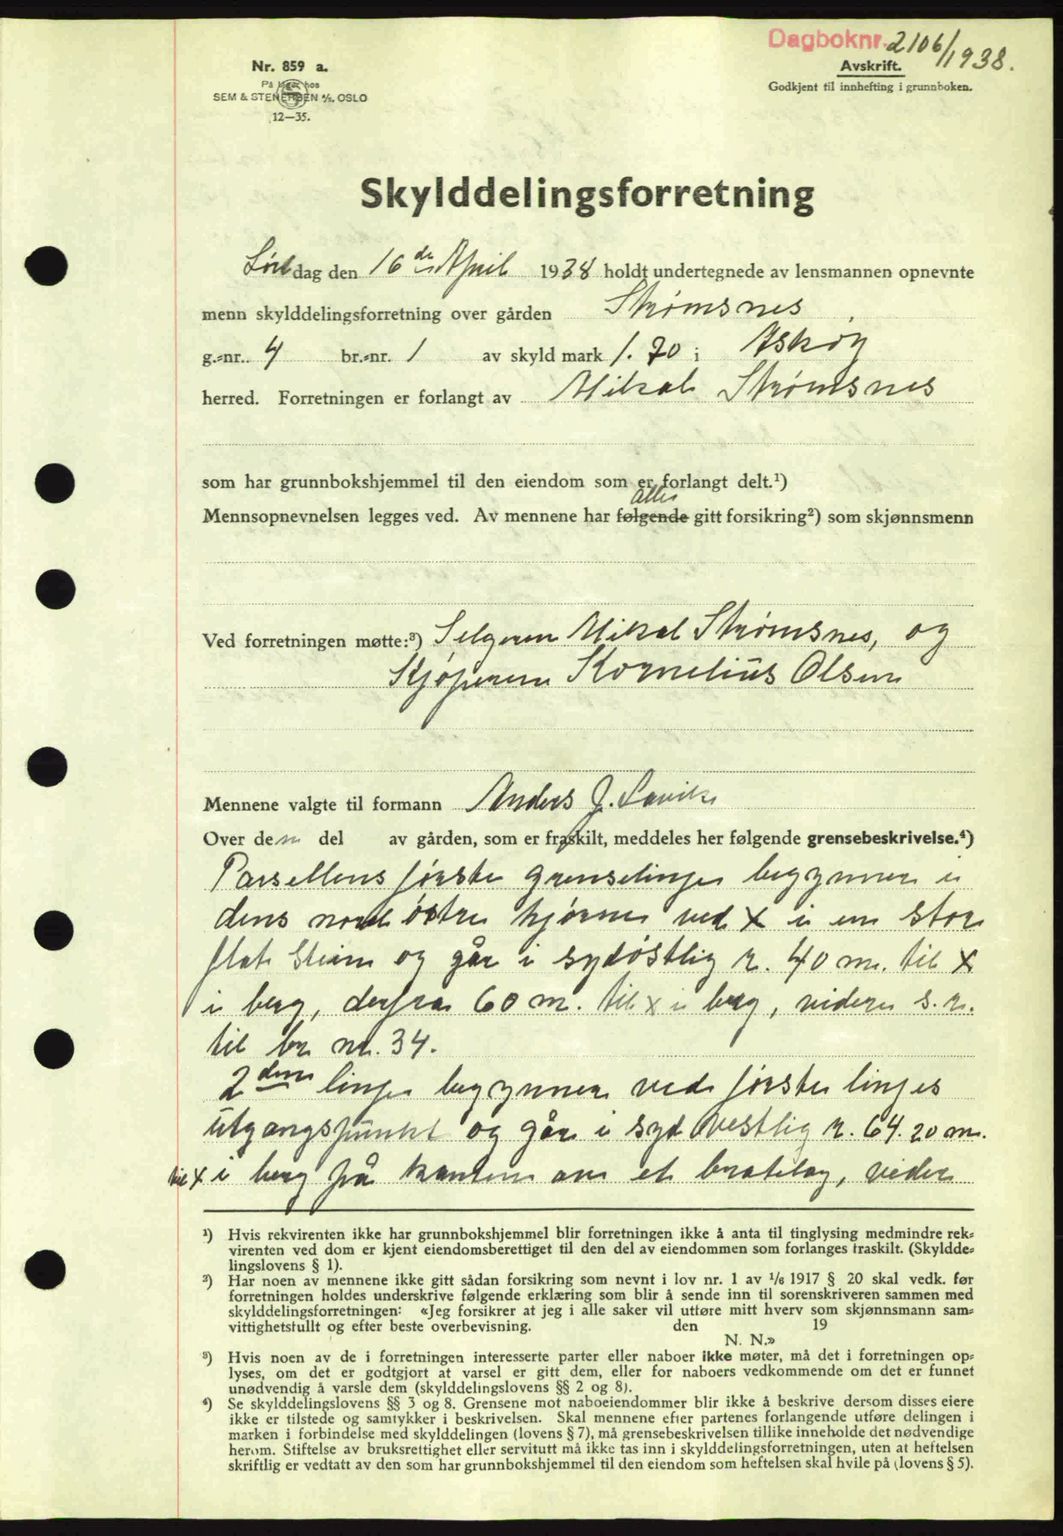 Dagboknr. 2106/1938.
Nr. 859 a.
På lager hos
SEM & STENERSEN A/S. OSLO
12—35.
Avskrift.
Godkjent til innhefting i grunnboken.
Skylddelingsforretning
Lørdag den 16de April 1938 holdt undertegnede av lensmannen opnevnte
menn skylddelingsforretning over gården Strømsnes,
g.-nr. 4 br.-nr. 1 av skyld mark 1.70 i Askøy
herred. Forretningen er forlangt av Mikal Strømsnes
som har grunnbokshjemmel til den eiendom som er forlangt delt.¹)
alle
Mennsopnevnelsen legges ved. Av mennene har følgende gitt forsikring²) som skjønnsmenn
Ved forretningen møtte:³) Selgeren Mikal Strømsnes, og
Kjøperen Kornelius Olsen
Mennene valgte til formann Anders J. Lavik
Over den del av gården, som er fraskilt, meddeles her følgende grensebeskrivelse.⁴)
Parsellens første grenselinje begynner i
dens nordøstre hjørne ved X i en stor
flat Stein og går i sydøstlig r. 40 m. til X
i berg, derfra 60 m. til X i berg, videre s. r.
til br nr. 34.
2den linje begynner ved første linjes
utgangspunkt og går i syd vestlig r. 64.20 m.
til X i berg på kanten av et bratelag, videre
¹) Hvis rekvirenten ikke har grunnbokshjemmel blir forretningen ikke å anta til tinglysing medmindre rek-
virenten ved dom er kjent eiendomsberettiget til den del av eiendommen som forlanges fraskilt. (Skyldde-
lingslovens § 1).
²) Har noen av mennene ikke gitt sådan forsikring som nevnt i lov nr. 1 av 1/6 1917 § 20 skal vedk. før
forretningen holdes underskrive følgende erklæring som blir å sende inn til sorenskriveren sammen med
skylddelingsforretningen: «Jeg forsikrer at jeg i alle saker vil utføre mitt hverv som skjønnsmann sam-
vittighetsfullt og efter beste overbevisning. den 19
N. N.»
³) Hvis noen av de i forretningen interesserte parter eller naboer ikke møter, må det i forretningen op-
lyses, om det er godtgjort at varsel er gitt dem, eller for naboers vedkommende om det er funnet
unødvendig å varsle dem (skylddelingslovens §§ 2 og 8).
⁴) Se skylddelingslovens §§ 3 og 8. Grensene mot naboeiendommer blir ikke å beskrive dersom disses eiere
ikke er tilstede og samtykker i beskrivelsen. Skal mennene efter partenes forlangende utføre delingen i
marken i forbindelse med skylddelingen (lovens § 7), må grensebeskrivelsen tillike inneholde det nødvendige
herom. Stiftelse av bruksrettighet eller servitutt må ikke tas inn i skylddelingsforretningen, uten at heftelsen
skriftlig er vedtatt av den som har grunnbokshjemmel til den eiendom som heftelsen skal hvile på (lovens § 5).